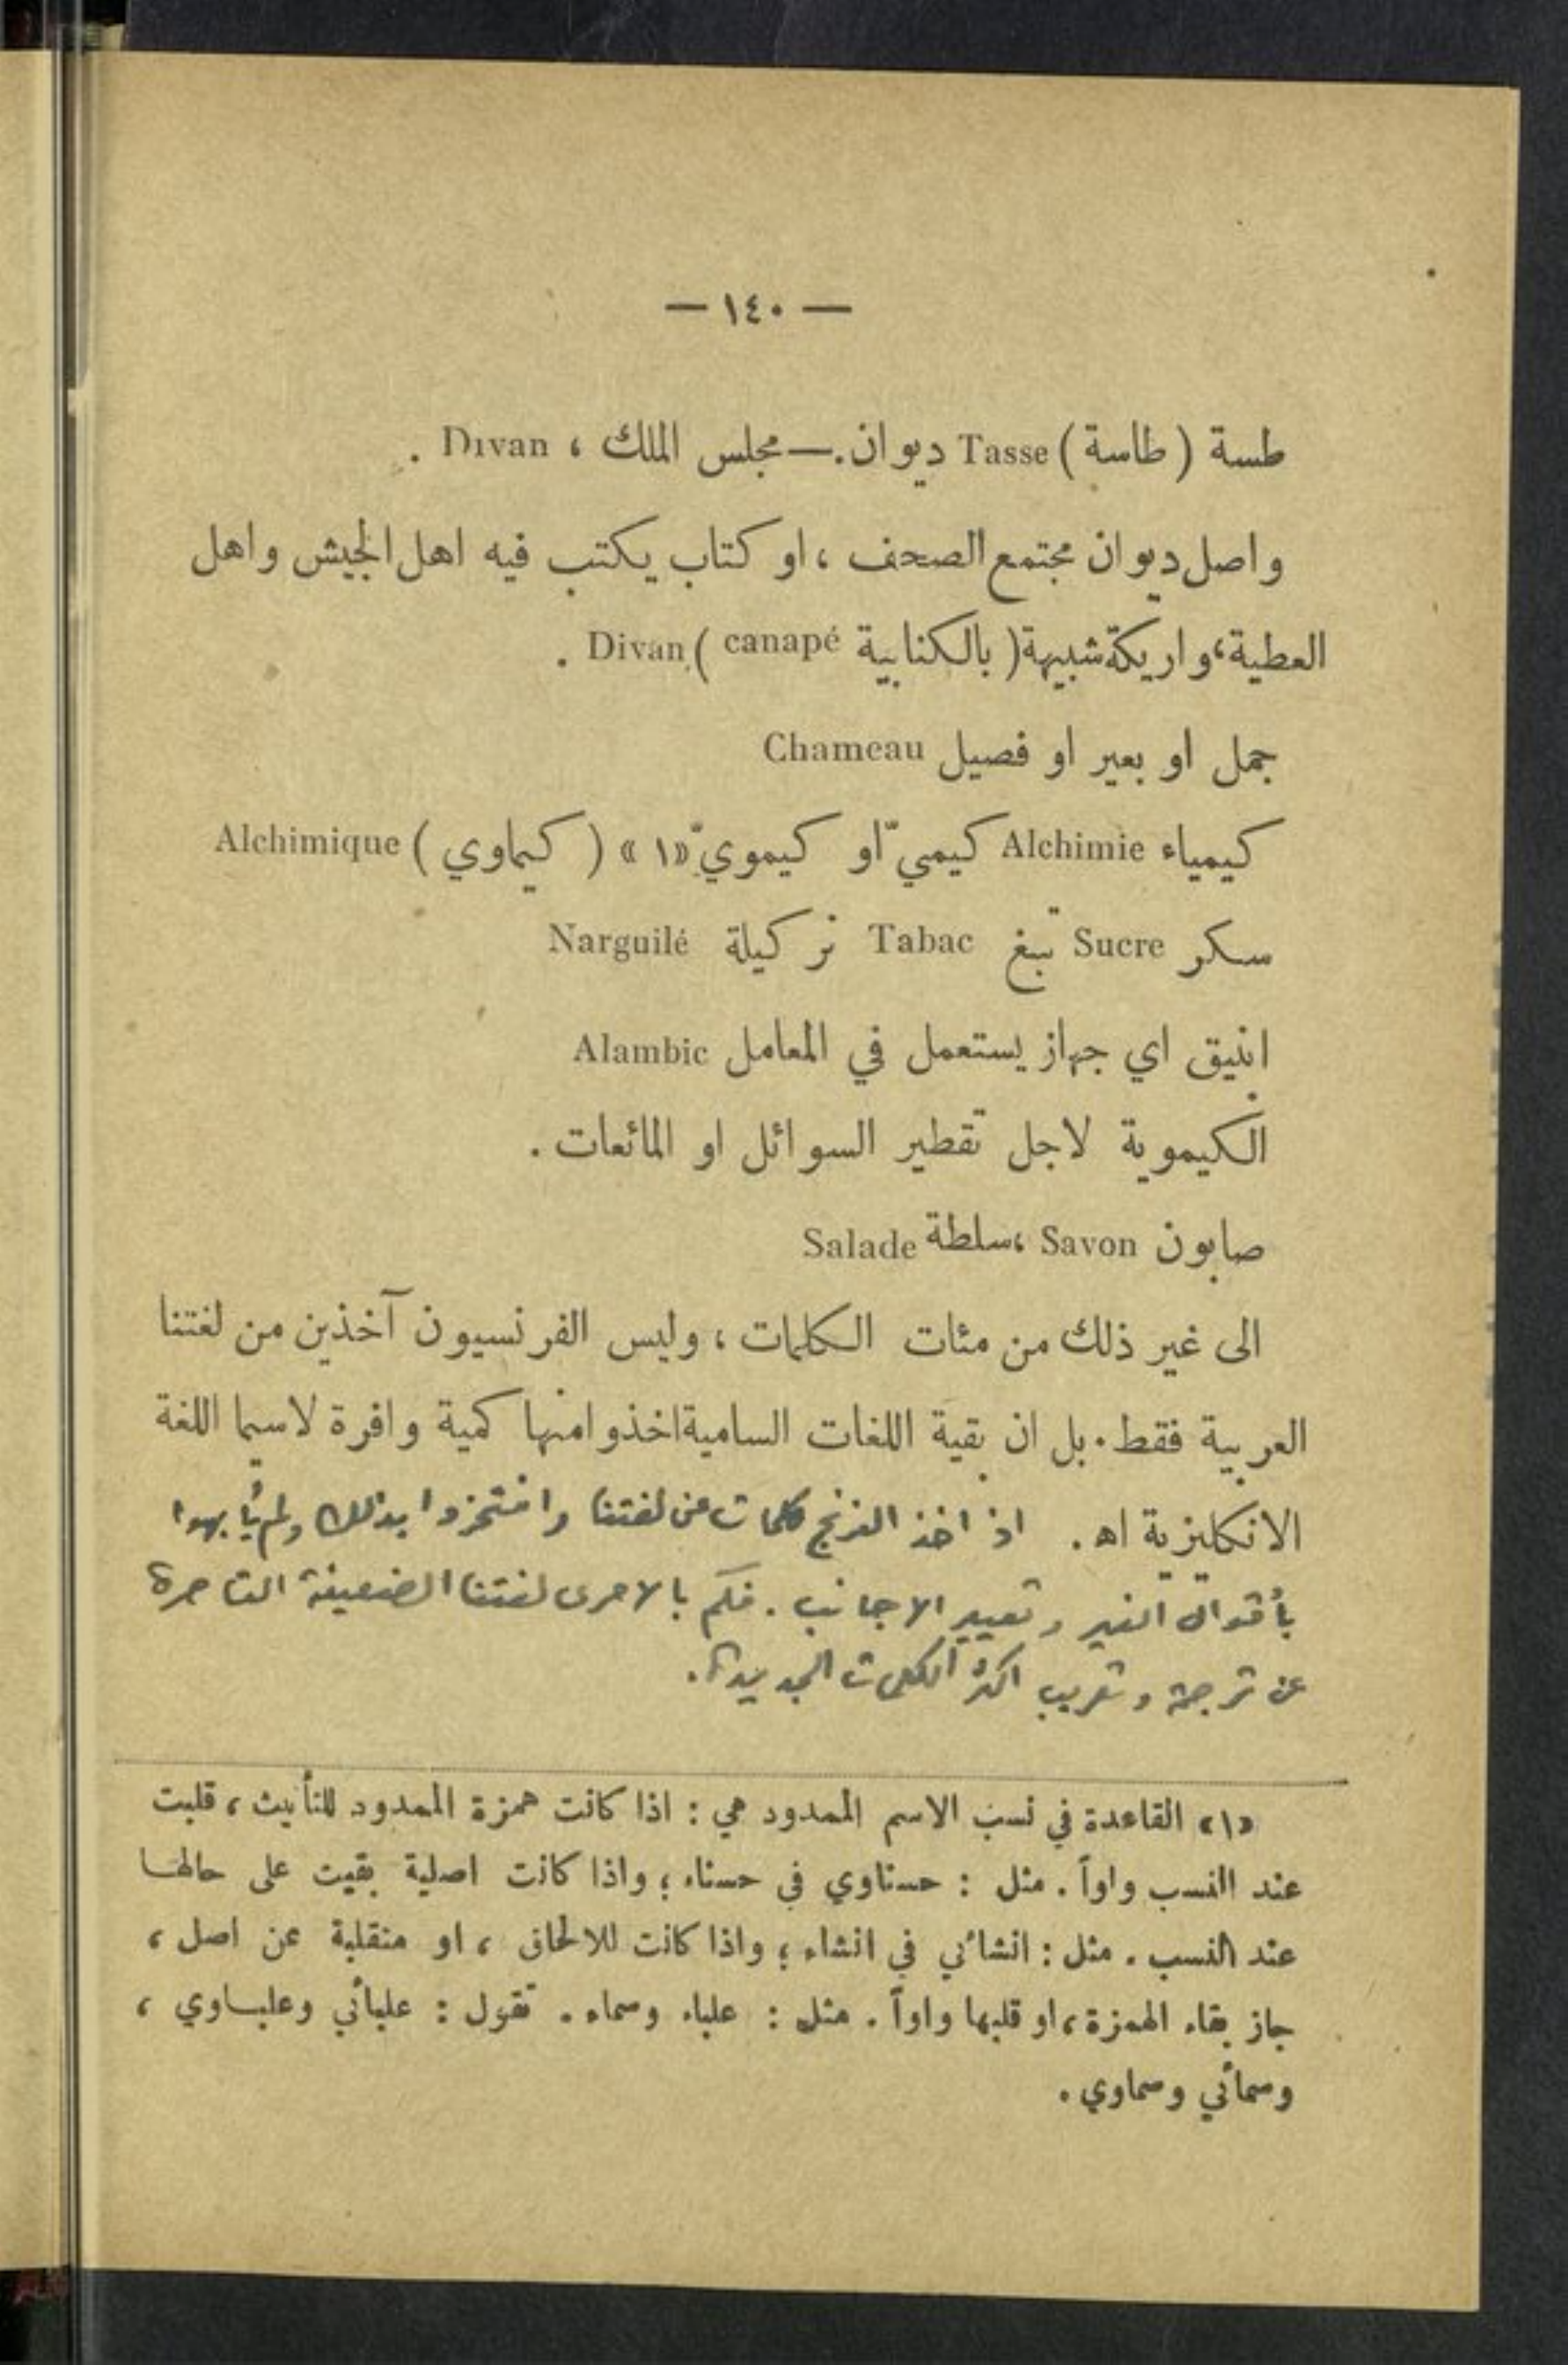 — ١٤٠ —
طسة ( طاسة ) Tasse ديوان.— مجلس الملك ، Divan .
واصل ديوان مجتمع الصحف ، او كتاب يكتب فيه اهل الجيش واهل
العطية ، واريكة شبيهة ( بالكنابية canapé ) Divan .
جمل او بعير او فصيل Chameau
كيمياء Alchimie كيميّ او كيمويّ «١» ( كيماوي ) Alchimique
سكر Sucre تبغ Tabac نركيلة Narguilé
انبيق اي جهاز يستعمل في المعامل Alambic
الكيموية لاجل تقطير السوائل او المائعات .
صابون Savon ، سلطة Salade
الى غير ذلك من مئات الكلمات ، وليس الفرنسيون آخذين من لغتنا
العربية فقط . بل ان بقية اللغات السامية اخذوا منها كمية وافرة لاسيما اللغة
الانكليزية اھ . اذ اخذ الفرنج كلمات عن لغتنا وافتخروا بذلك ولم يأبهوا
بأقوال الغير وتعيير الاجانب . فكم بالاحرى لغتنا الضعيفة القاصرة
عن ترجمة وتعريب اكثر الكلمات الجديدة .
«١» القاعدة في نسب الاسم الممدود هي : اذا كانت همزة الممدود للتأنيث ، قلبت
عند النسب واواً . مثل : حسناوي في حسناء ؛ واذا كانت اصلية بقيت على حالها
عند النسب . مثل : انشائي في انشاء ؛ واذا كانت للالحاق ، او منقلبة عن اصل ،
جاز بقاء الهمزة ، او قلبها واواً . مثل : علباء وسماء . تقول : علبائي وعلباوي ،
وسمائي وسماوي .